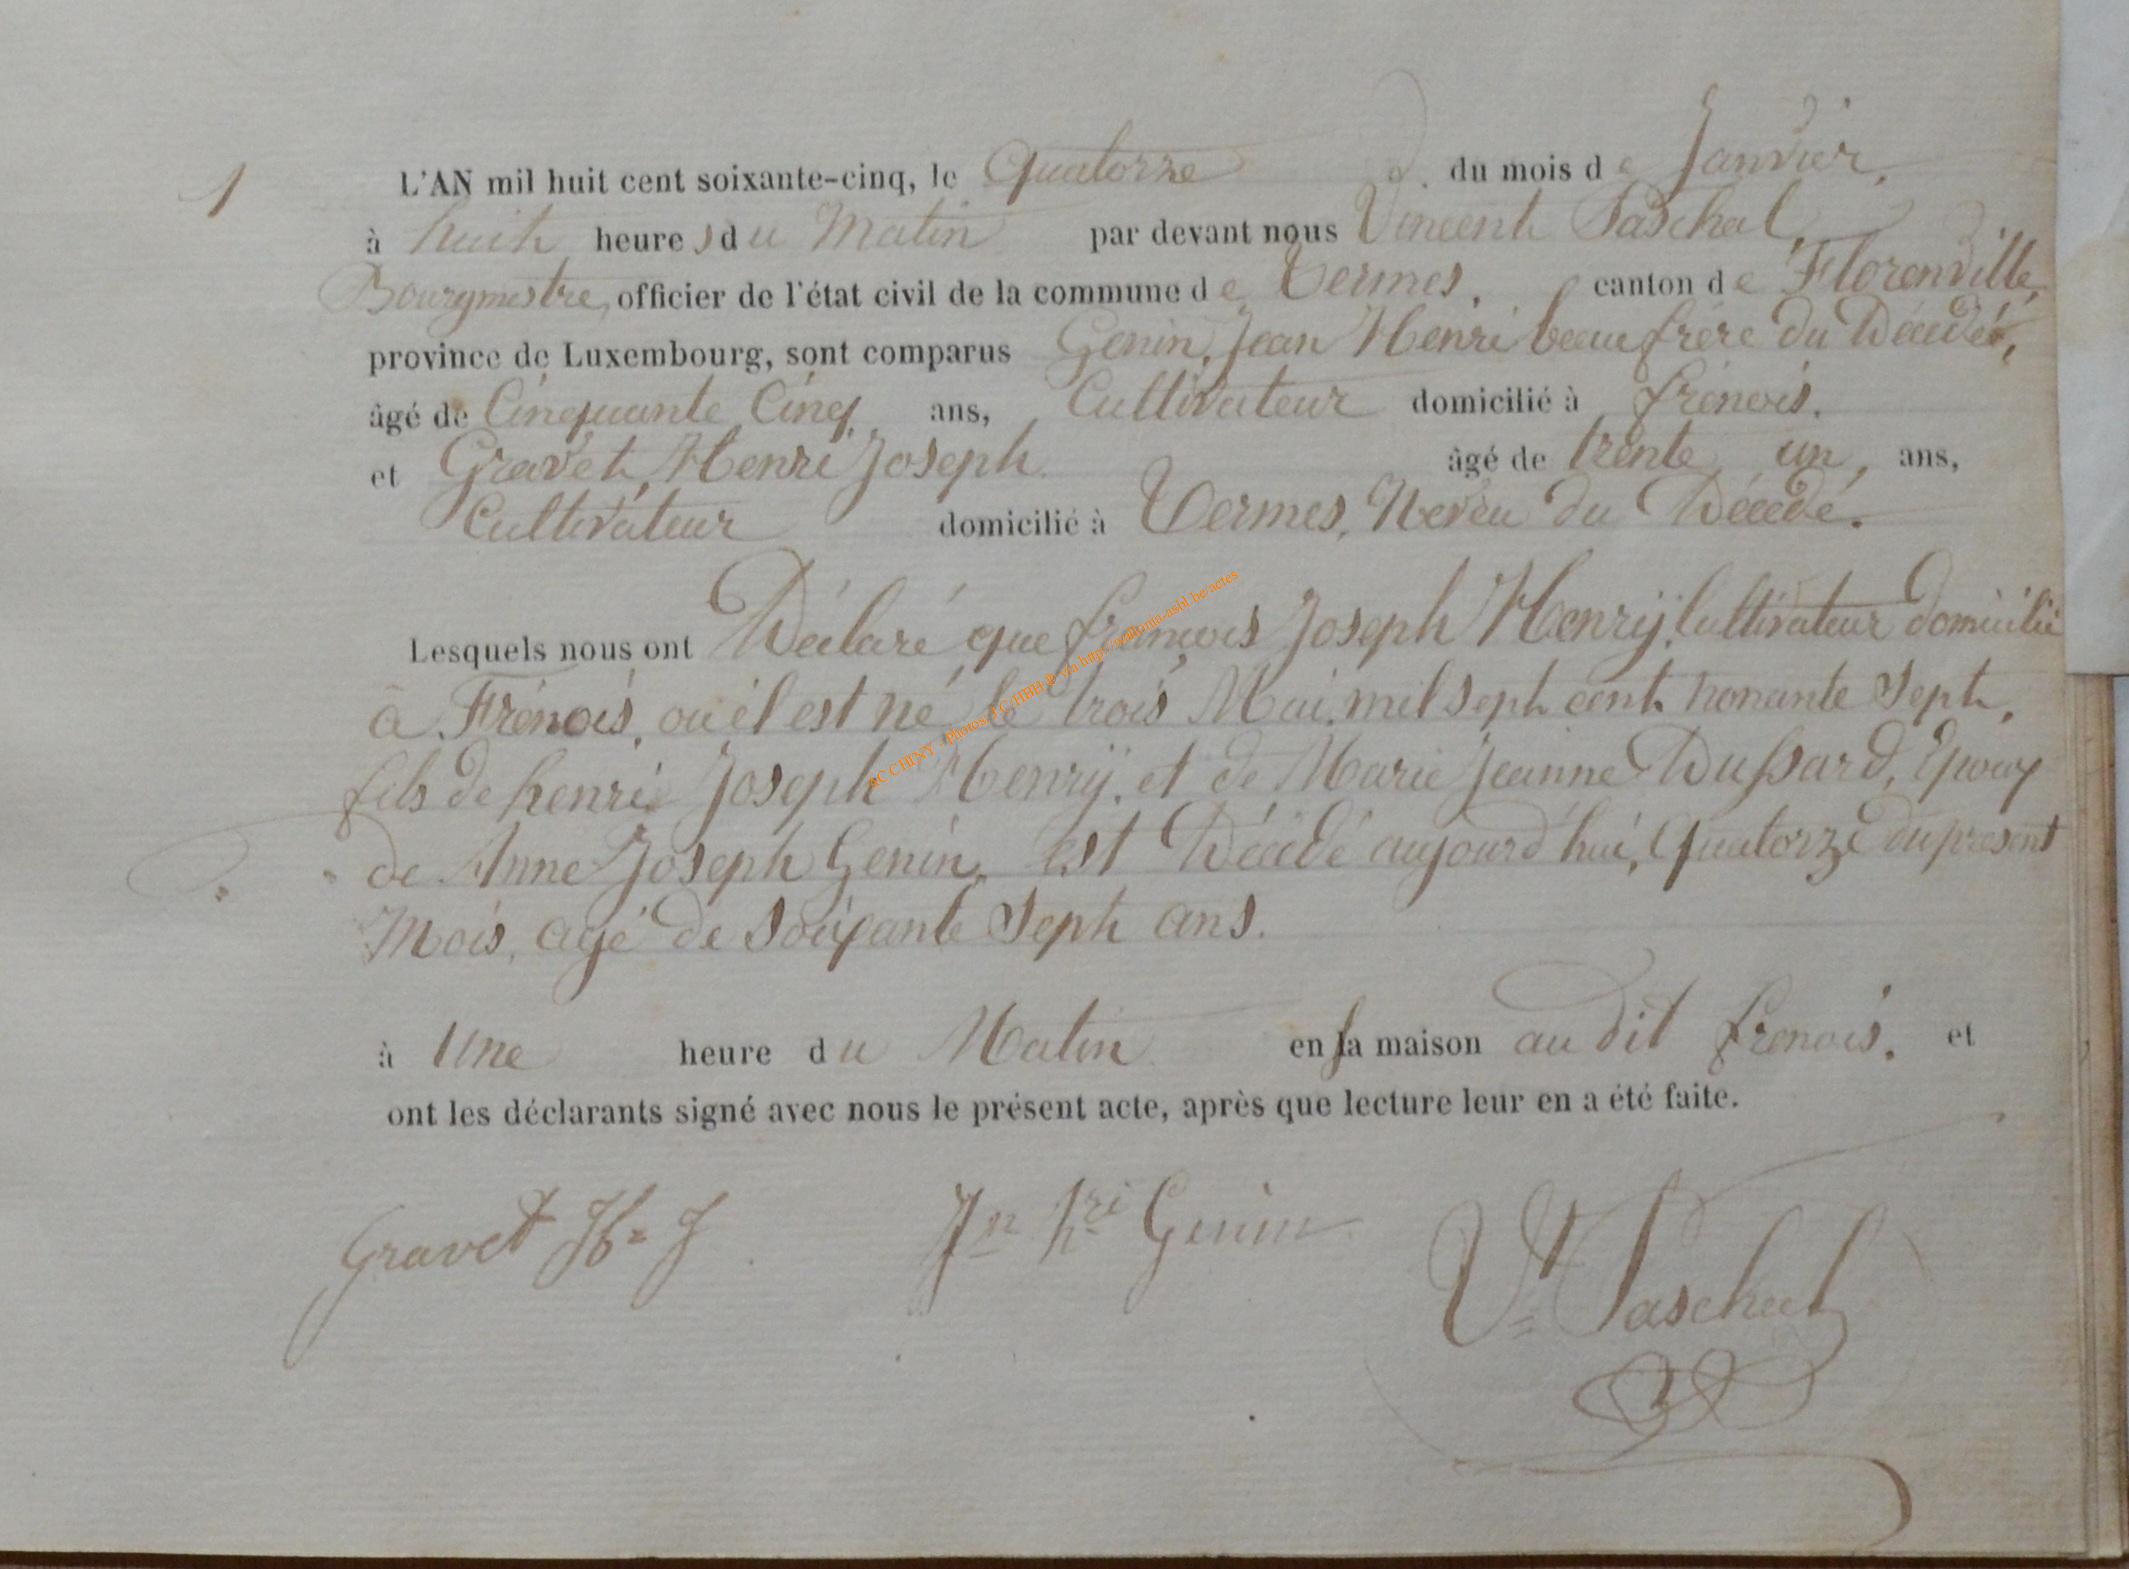 1
L'AN mil huit cent soixante-cinq, le Quatorze du mois de Janvier,
à huit heures du Matin par devant nous Vincent Paschal,
Bourgmestre, officier de l'état civil de la commune de Termes, canton de Florenville,
province de Luxembourg, sont comparus Genin, Jean Henri beaufrère du Décédé,
âgé de Cinquante Cinq ans, Cultivateur domicilié à frénois.
et Gravet, Henri Joseph âgé de trente un, ans,
Cultivateur domicilié à Termes, Neveu du Décédé.
Lesquels nous ont Déclaré que françois Joseph Henrÿ, Cultivateur domicilié
à Frénois, où il est né le trois Mai, mil sept cent nonante Sept,
fils de henri Joseph Henrÿ, et de Marie Jeanne Dussard, Epoux
de Anne Joseph Genin, est Décédé aujourd'hui, Quatorze du présent
Mois, agé de Soixante Sept ans.
à Une heure du Matin en sa maison au dit frenois. et
ont les déclarants signé avec nous le présent acte, après que lecture leur en a été faite.
Gravet H= J Jn hri Genin Vt Paschal
AC CHINY - Photos J C/HBH via http://wallonia-asbl.be/actes